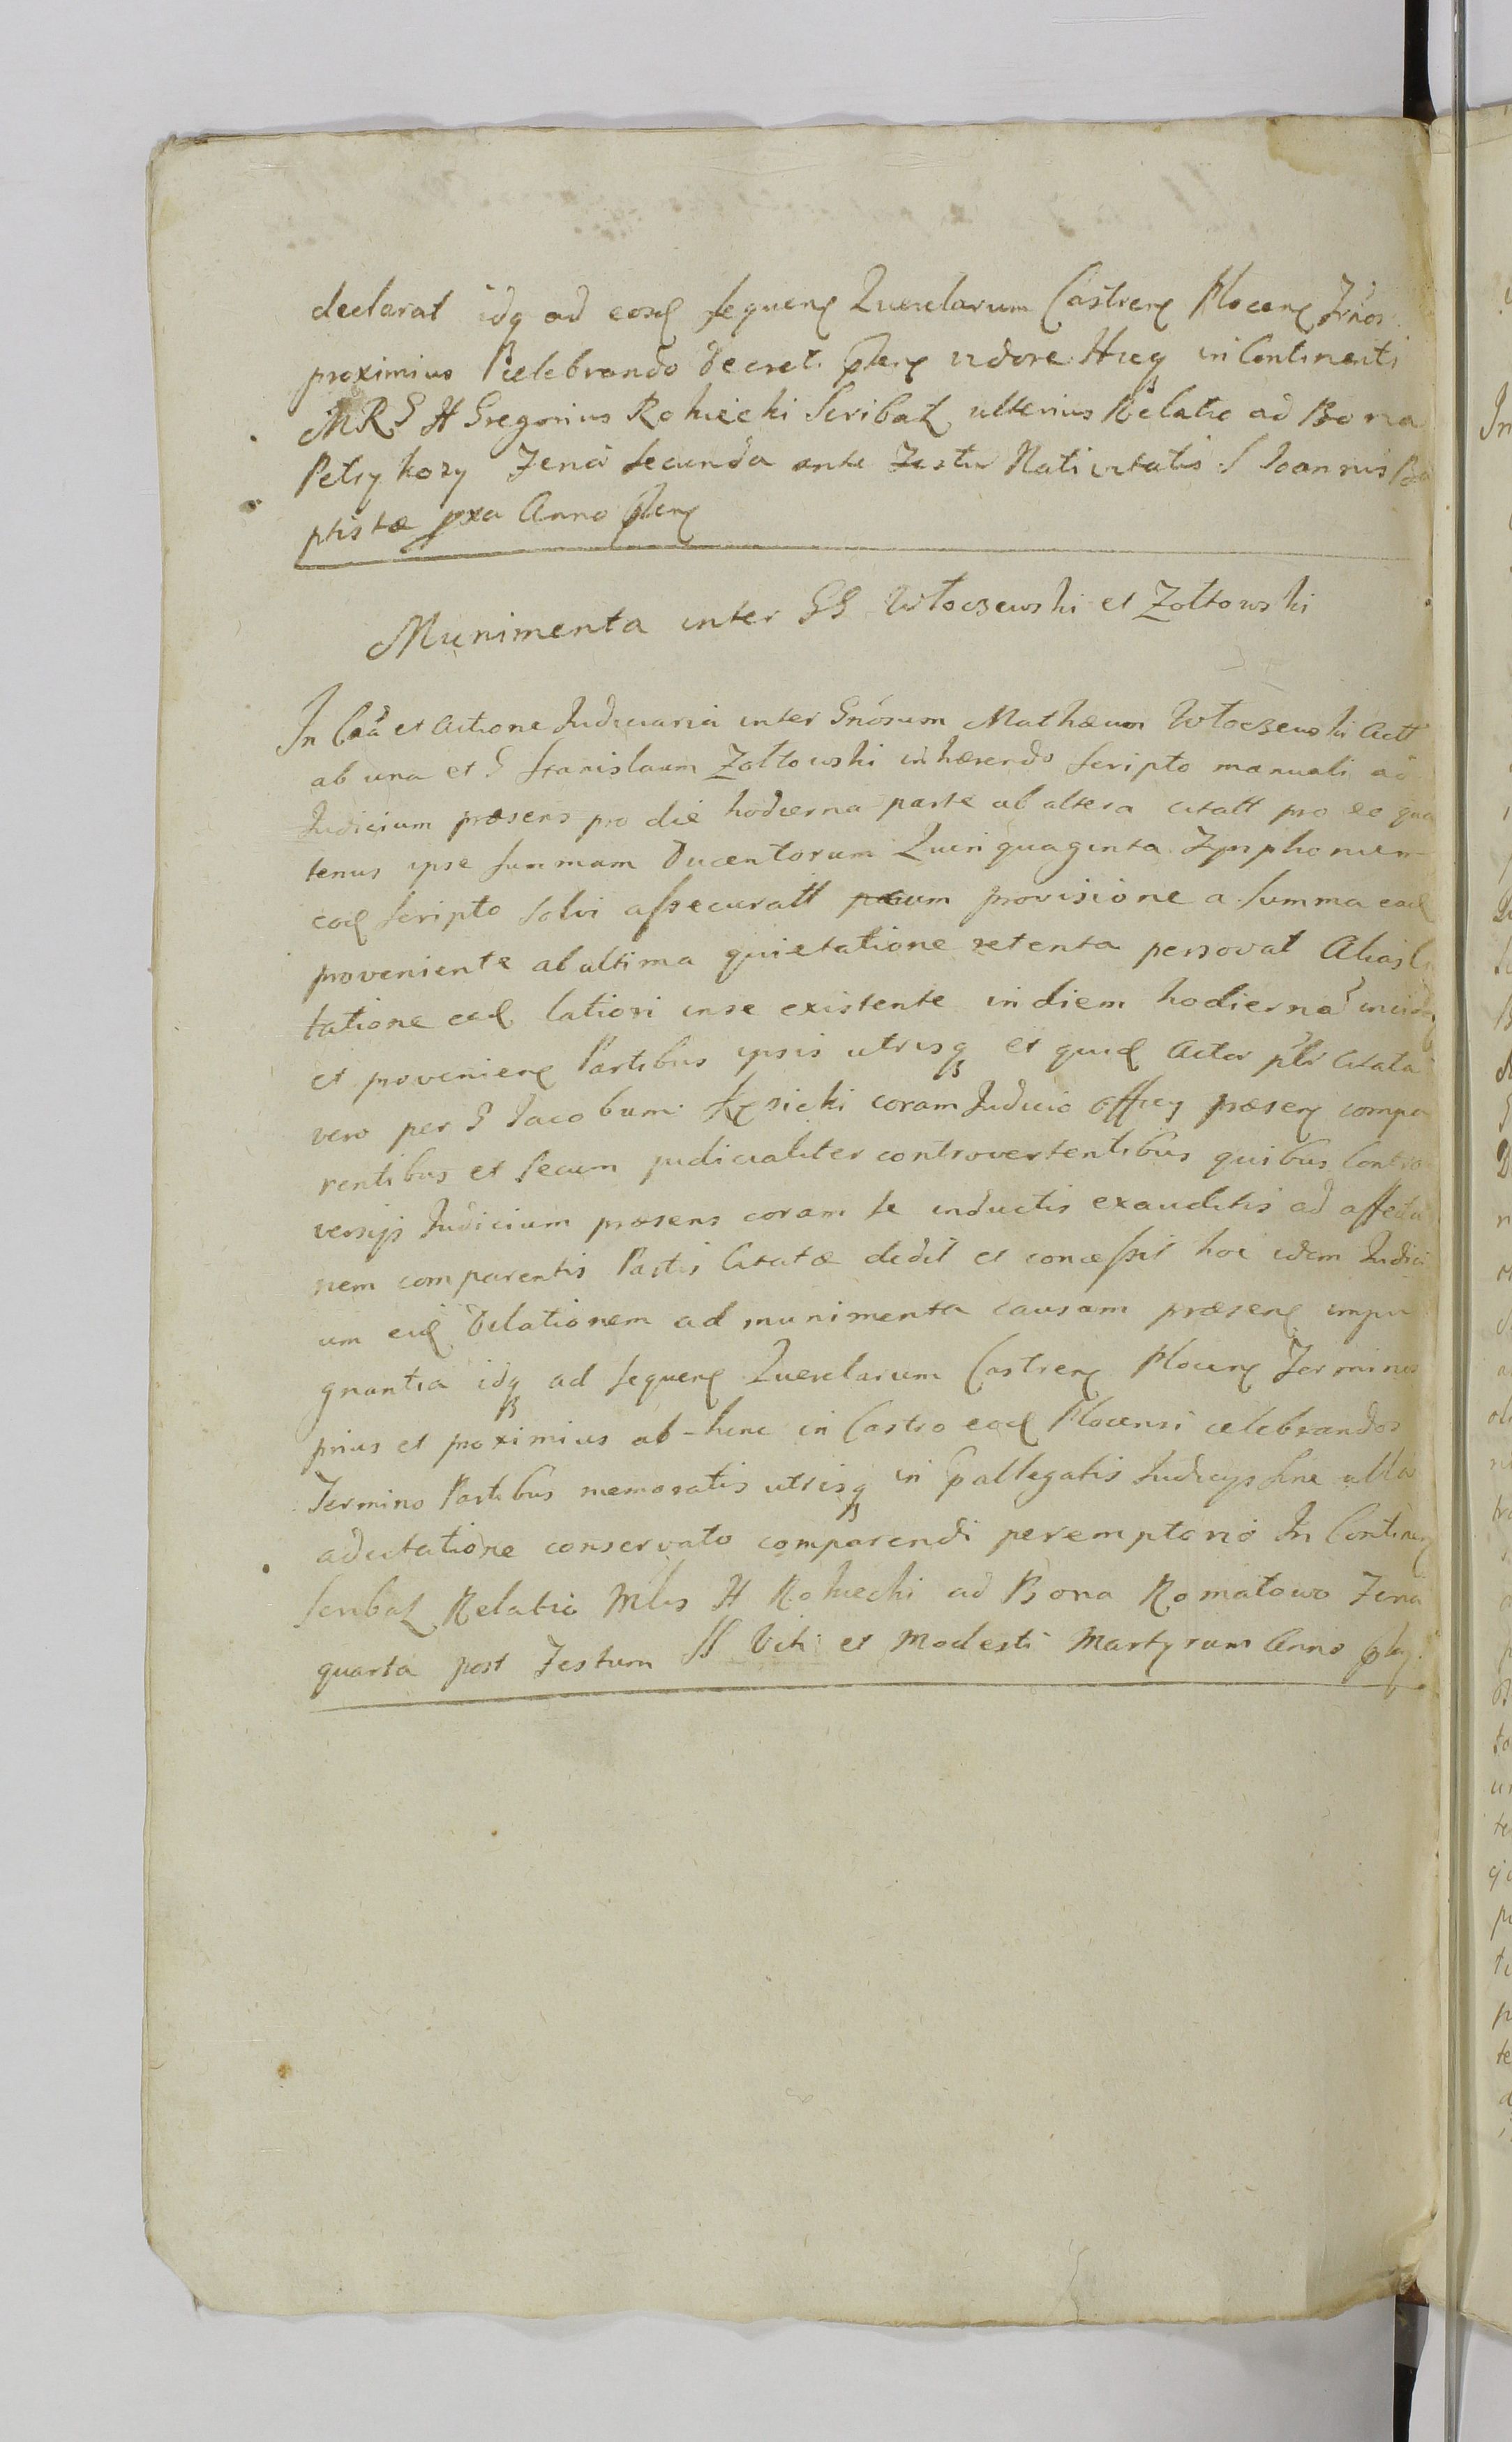 declarat idq ad eosd sequen Querelarum Castren Plocen Trnos
proximius celebrando decreti pten vidore Hug in Continenti
MRG H Gregorius Rokicki Scribat ulterius Relatio ad Bona
Petrykozy Feria secunda ante Festu Nativitatis S Joannis Ba
ptistæ pxa Anno pten
Munimenta inter GG Włoczewski et Zołtowski
In Caa et Actione Judiciaria inter Gnosum Mathæum Włoczewski Act
ab una et G Stanislaum Zołtowski inhærendo scripto manuali ad
Judicium præsens pro die hodierna parte ab altera citatt pro eo qua
tenus ipse summam Ducentorum Quinquaginta Tynphonum
eod scripto solvi assecuratt cum provisione a summa ead
proveniente ab ultima quietatione retenta persovat Alias Ci
tatione ead latiori in se existente in diem hodierna inciden
et provenien Partibus ipsis utrisq et quid Actor plr Citata
vero per G Jacobum coram Judicio Offici præsen compa
rentibus et secum judicialiter controvertentibus quibus Contro
versijs Judicium præsens coram se inductis exauditis ad affecta
nem comparentis Partis Citatæ dedit et concessit hoc idem Judici
um eid Dilationem ad munimenta causam præsen impu
gnantia idq ad sequen Querelarum Castren Plocen Terminos
prius et proximius ab-hinc in Castro eod Plocensi celebrandos
Termino Partibus memoratis utrisq in pallegatis Judicijs sine ulla
adcitatione conservato comparendi peremptorio In Continen
scribat Relatio Mlis H Rokicki ad Bona Romatowo Feria
quarta post Festum SS Viti et Modesti Martyrum Anno pten